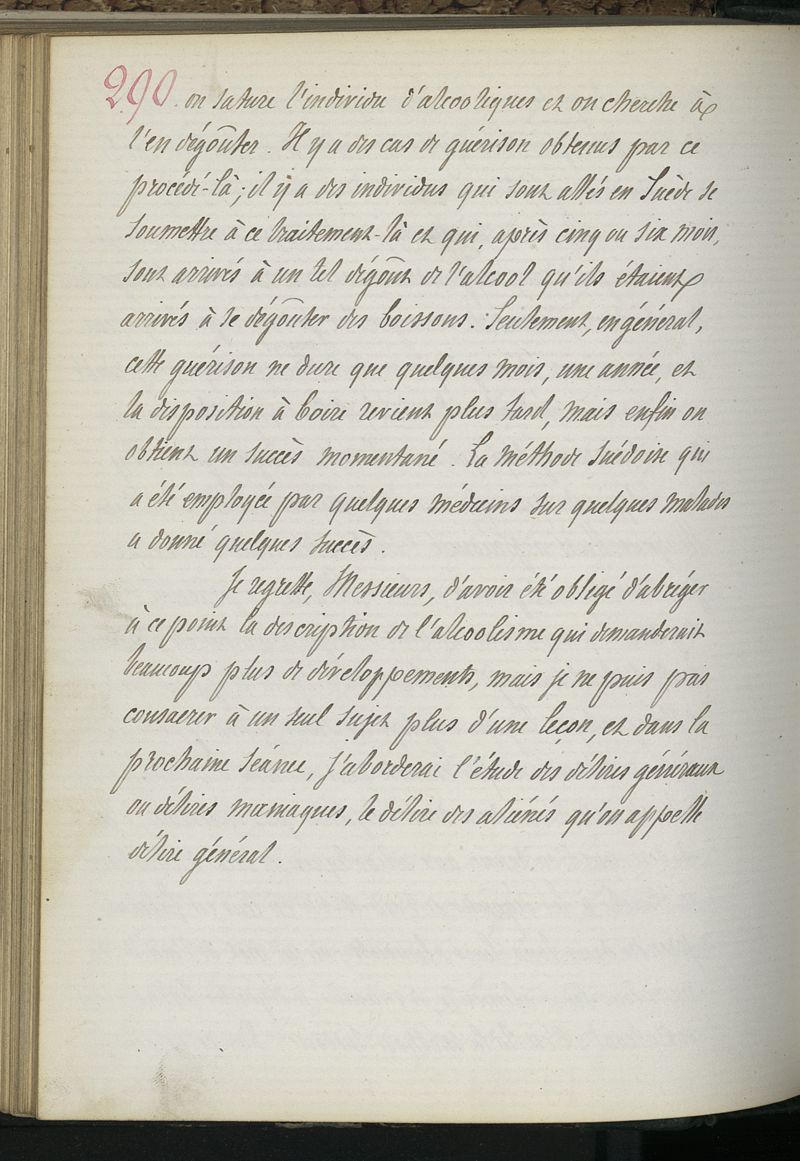 290. on sature l'individu d'alcooliques et on cherche à
l'en dégoûter. Il y a des cas de guérison obtenus par ce
procédé-là; il y a des individus qui sont allés en Suède se
soumettre à ce traitement-là et qui, après cinq ou six mois,
sont arrivés à un tel dégoût de l'alcool qu'ils étaient
arrivés à se dégoûter des boissons. Seulement, en général,
cette guérison ne dure que quelques mois, une année, et
la disposition à boire revient plus tard, mais enfin on
obtient un succès momentané. La méthode suédoise qui
a été employée par quelques médecins sur quelques malades
a donné quelques succès.
Je regrette, Messieurs, d'avoir été obligé d'abréger
à ce point la description de l'alcoolisme qui demanderait
beaucoup plus de développements, mais je ne puis pas
consacrer à un seul sujet plus d'une leçon, et dans la
prochaine séance, j'aborderai l'étude des délires généraux
ou délires maniaques, le délire des aliénés qu'on appelle
délire général.